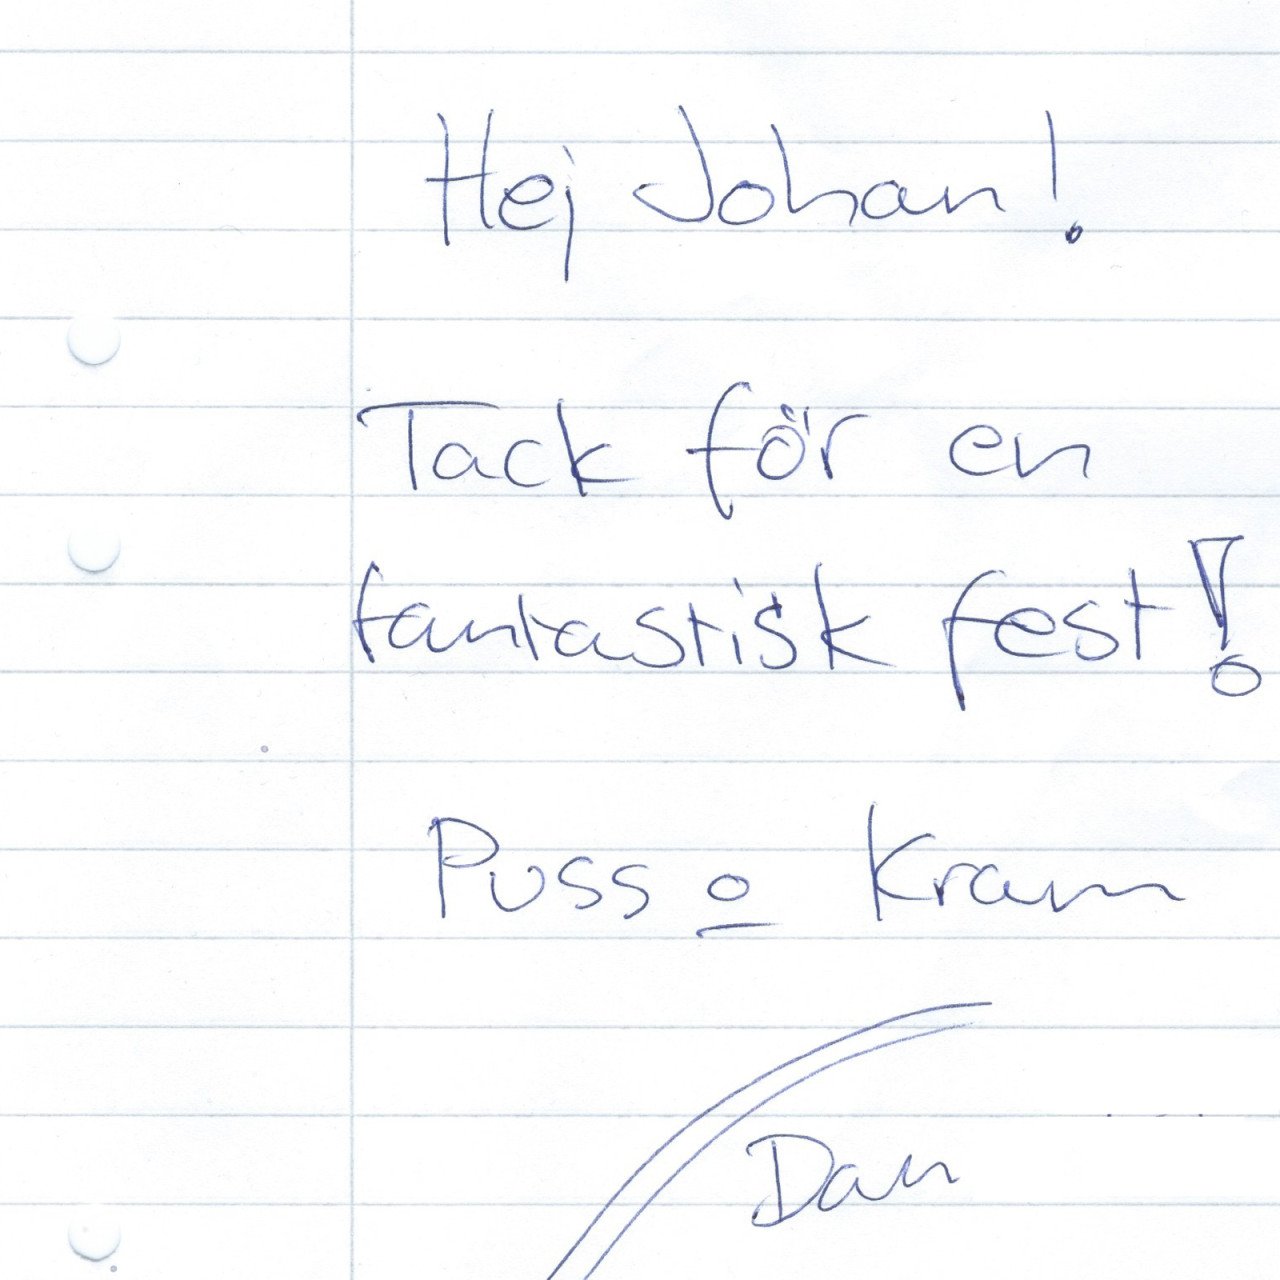 Hej Johan!
Tack för en
fantastisk fest!
Puss o Kram
Dan